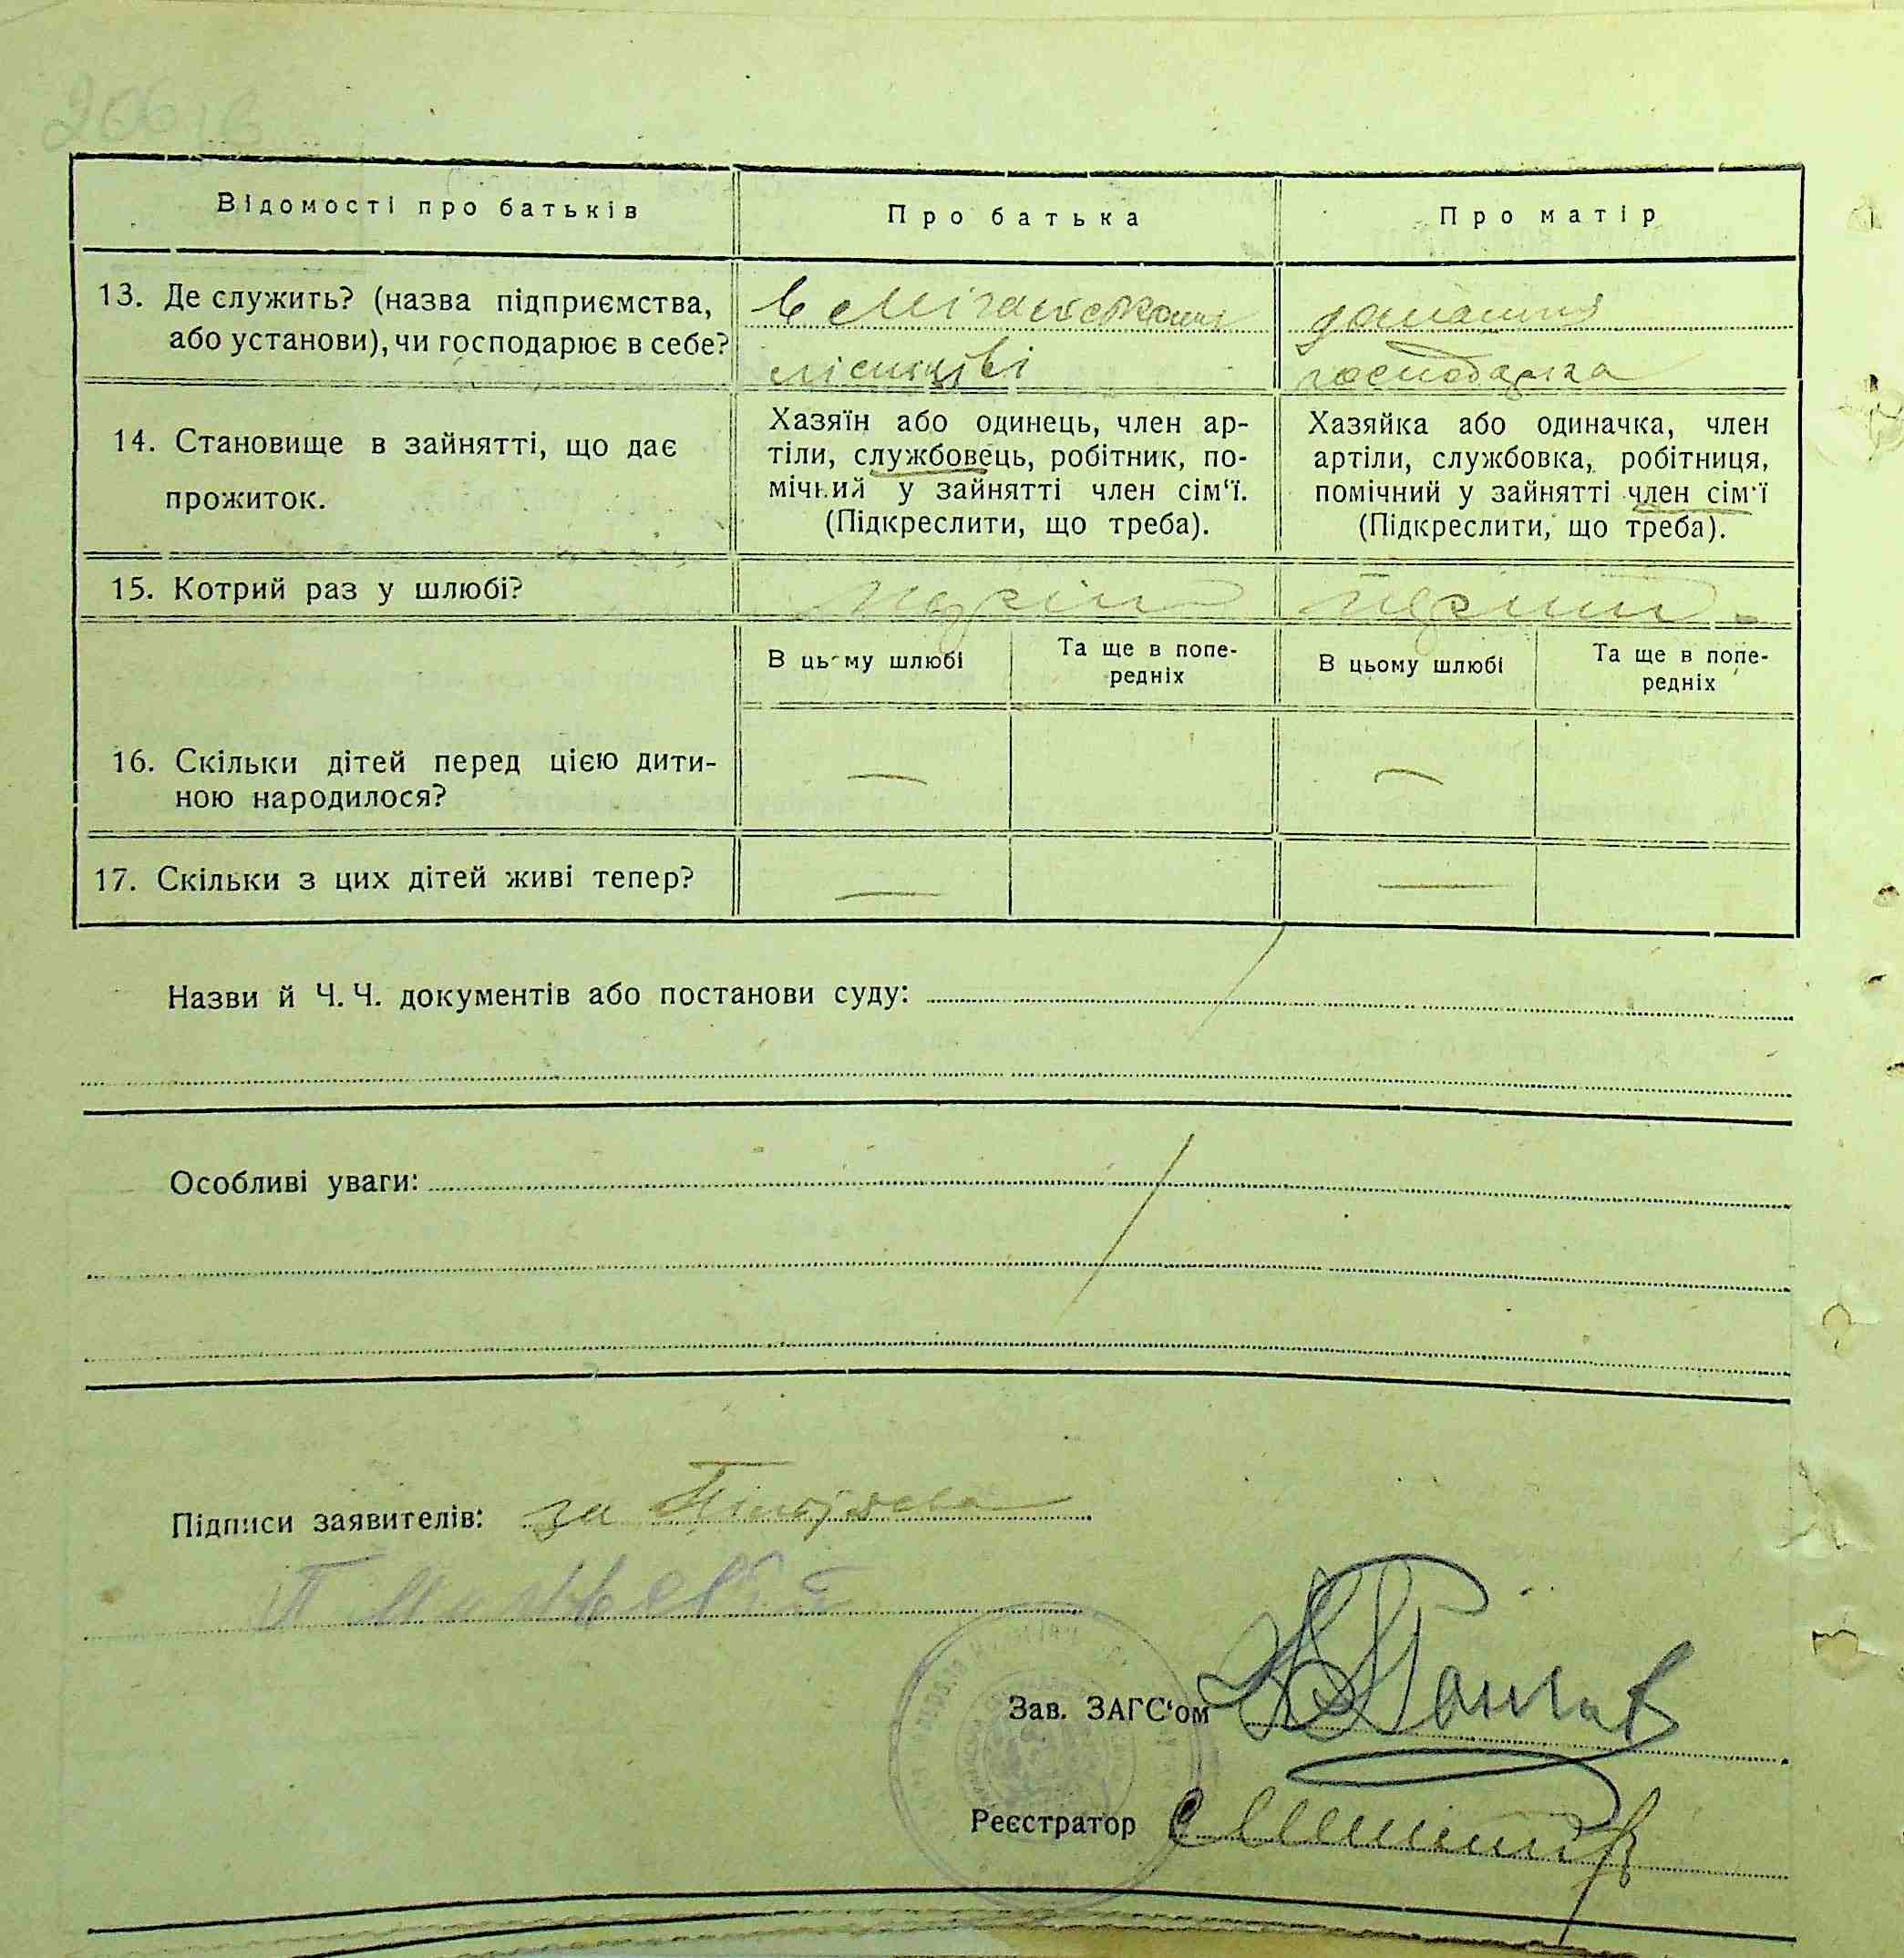 Відомості про батьків
Про батька
Про матір
13. Де служить? (назва підприємства,
або установи), чи господарює в себе?
в
лісництві
домашня
господарка
14. Становище в зайнятті, що дає
прожиток.
Хазяїн або одинець, член ар-
тіли, службовець, робітник, по-
мічний у зайнятті член сім‘ї.
(Підкреслити, що треба).
Хазяйка або одиначка, член
артіли, службовка, робітниця,
помічний у зайнятті член сім‘ї
(Підкреслити, що треба).
15. Котрий раз у шлюбі?
В цьому шлюбі
Та ще в попе-
редніх
В цьому шлюбі
Та ще в попе-
редніх
16. Скільки дітей перед цією дити-
ною народилося?
—
—
17. Скільки з цих дітей живі тепер?
—
—
Назви й Ч. Ч. документів або постанови суду:
Особливі уваги:
Підписи заявителів: за
Зав. ЗАГС‘ом
Реєстратор